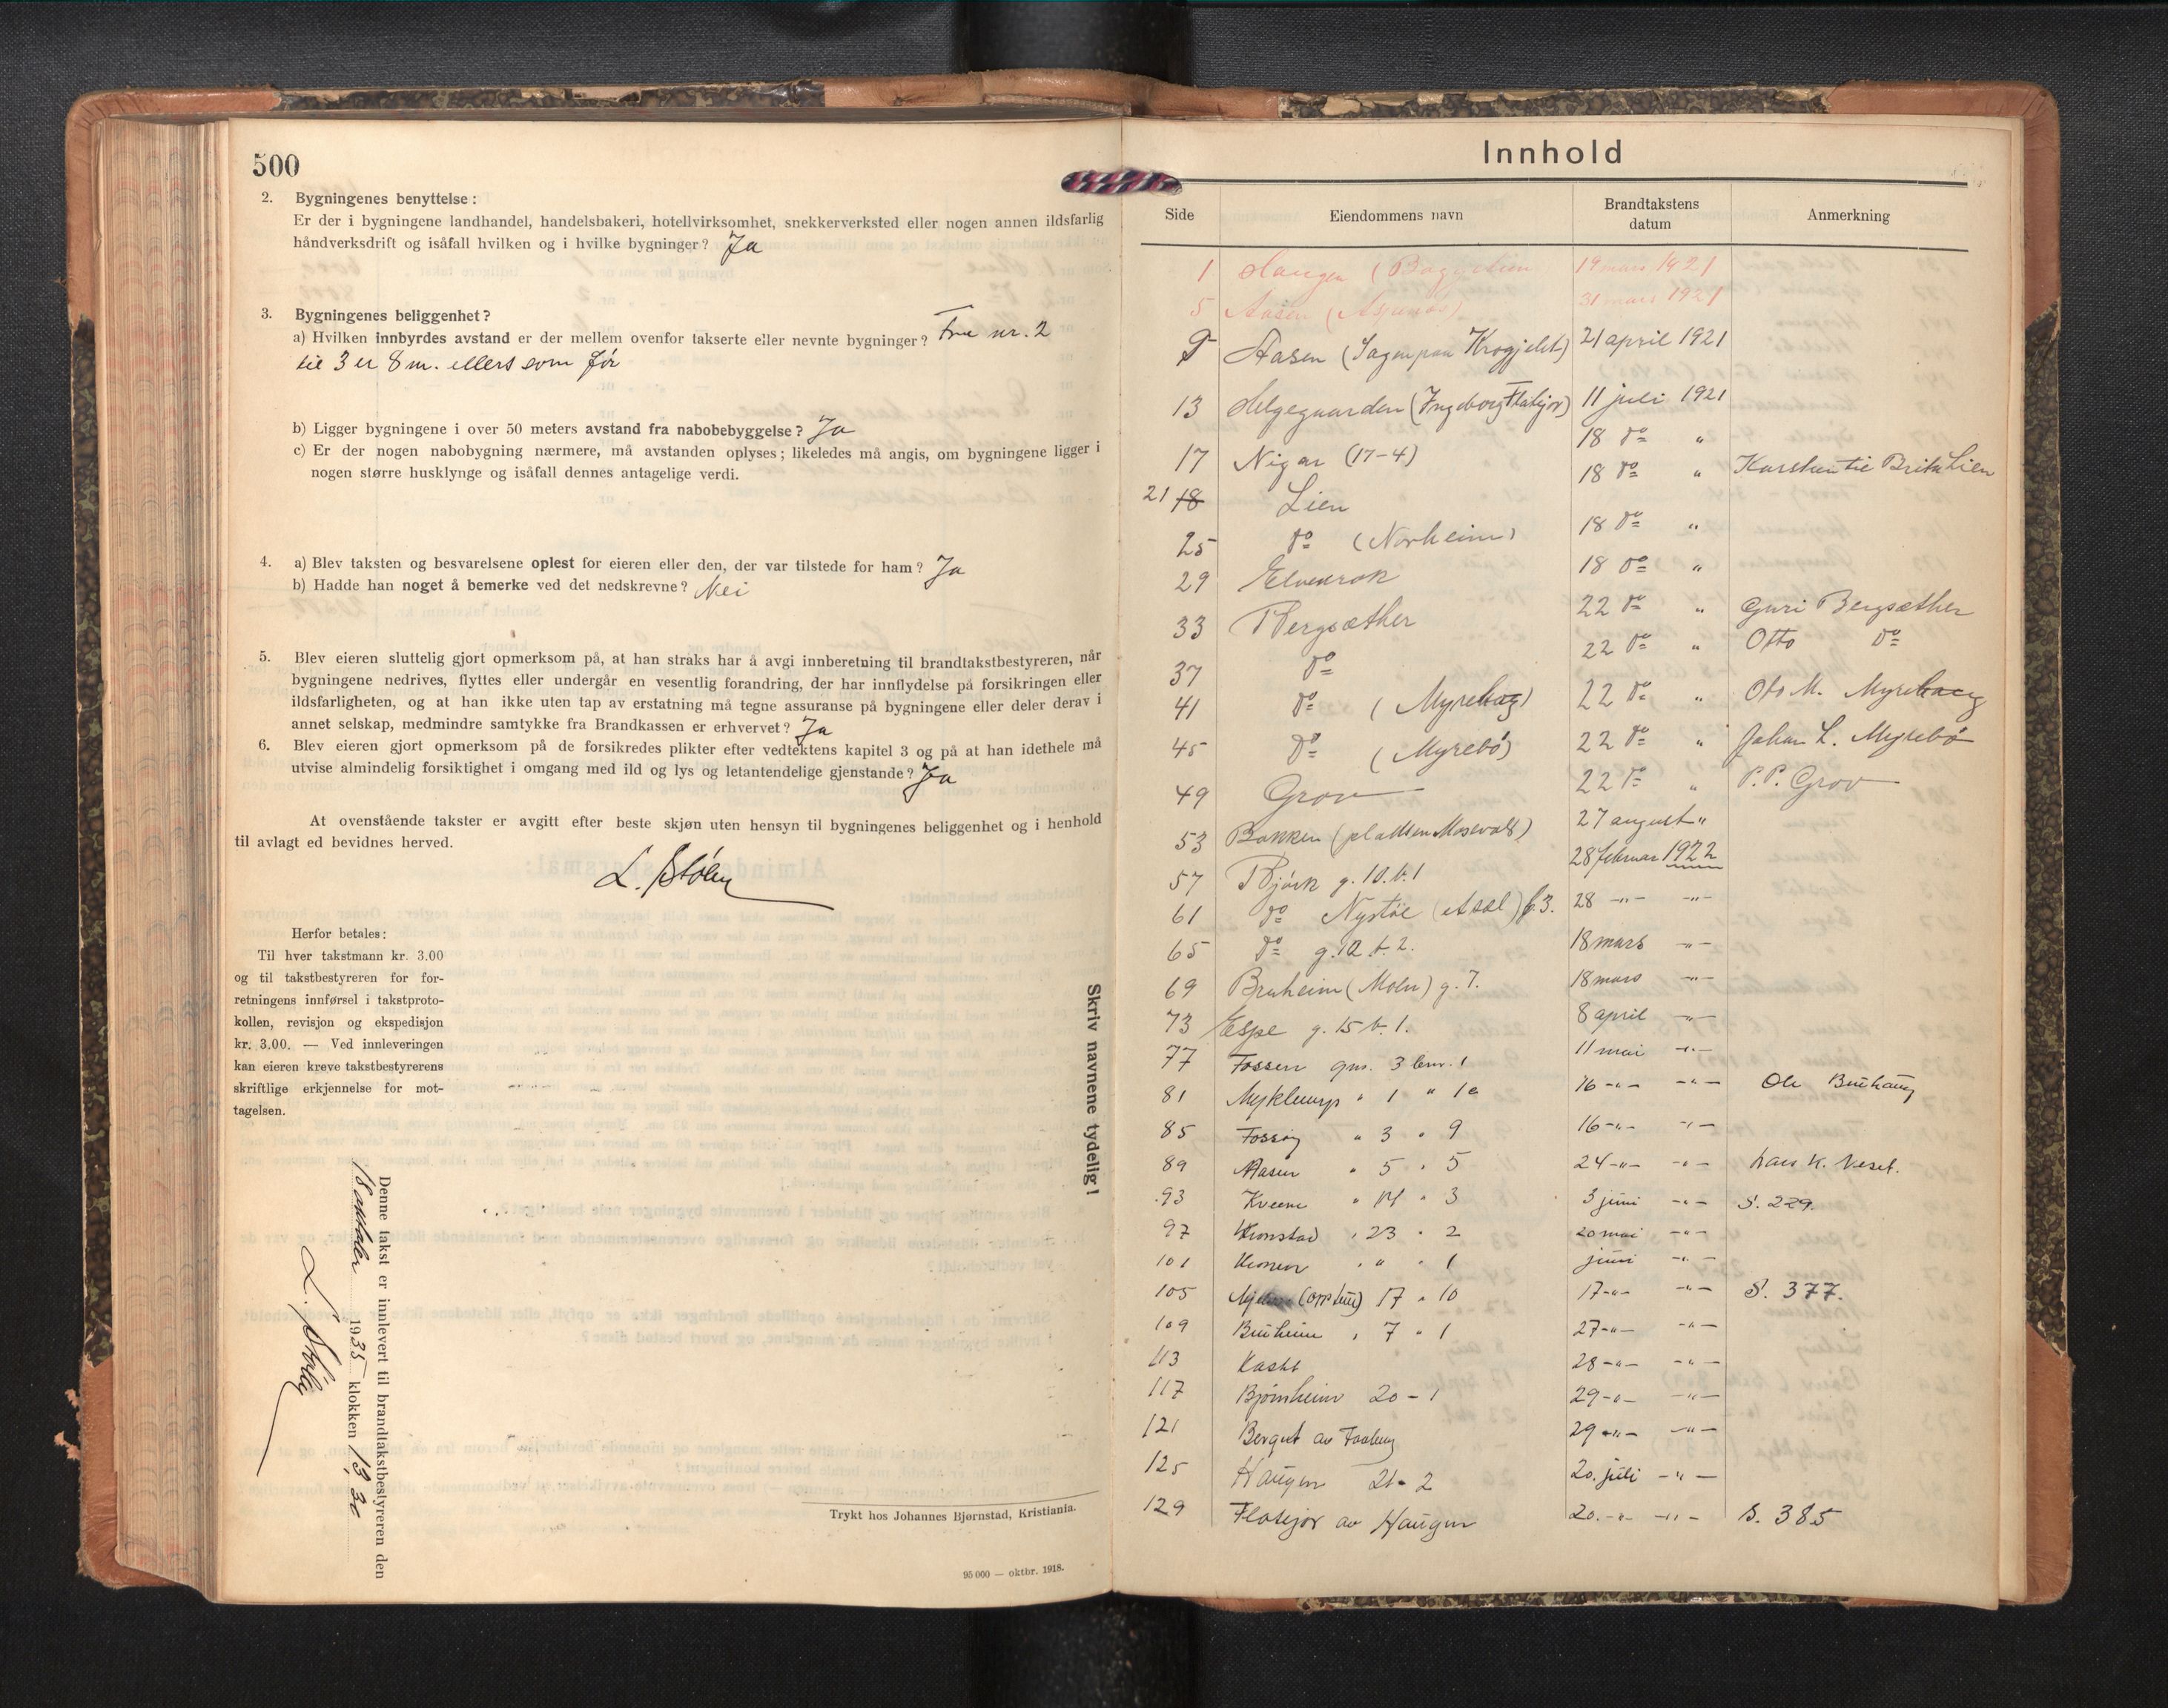 500
2. Bygningenes benyttelse:
Er der i bygningene landhandel, handelsbakeri, hotellvirksomhet, snekkerverksted eller nogen annen ildsfarlig
håndverksdrift og isåfall hvilken og i hvilke bygninger? Ja
3. Bygningenes beliggenhet?
a) Hvilken innbyrdes avstand er der mellem ovenfor takserte eller nevnte bygninger? Fra nr. 2
til 3 er 8 m. ellers som før
b) Ligger bygningene i over 50 meters avstand fra nabobebyggelse? Ja
c) Er der nogen nabobygning nærmere, må avstanden oplyses; likeledes må angis, om bygningene ligger i
nogen større husklynge og isåfall dennes antagelige verdi.
4. a) Blev taksten og besvarelsene oplest for eieren eller den, der var tilstede for ham? Ja
b) Hadde han noget å bemerke ved det nedskrevne? Nei
5. Blev eieren sluttelig gjort opmerksom på, at han straks har å avgi innberetning til brandtakstbestyreren, når
bygningene nedrives, flyttes eller undergår en vesentlig forandring, der har innflydelse på forsikringen eller
ildsfarligheten, og at han ikke uten tap av erstatning må tegne assuranse på bygningene eller deler derav i
annet selskap, medmindre samtykke fra Brandkassen er erhvervet? Ja
6. Blev eieren gjort opmerksom på de forsikredes plikter efter vedtektens kapitel 3 og på at han idethele må
utvise almindelig forsiktighet i omgang med ild og lys og letantendelige gjenstande? Ja
At ovenstående takster er avgitt efter beste skjøn uten hensyn til bygningenes beliggenhet og i henhold
til avlagt ed bevidnes herved.
L. Stølen
Herfor betales:
Til hver takstmann kr. 3.00
og til takstbestyreren for for-
retningens innførsel i takstproto-
kollen, revisjon og ekspedisjon
kr. 3.00. — Ved innleveringen
kan eieren kreve takstbestyrerens
skriftlige erkjennelse for mot-
tagelsen.
Denne takst er innlevert til brandtakstbestyreren den
18 oktober 1935 klokken 13,30
L. Stølen
Skriv navnene tydelig!
Trykt hos Johannes Bjørnstad, Kristiania.
95 000 — oktbr. 1918.
Innhold
Side Eiendommens navn Brandtakstens datum Anmerkning
1 Haugen 19 mars 1921
5 Aasen 31 mars 1921
9 Aasen 21 april 1921
13 Helgegaarden (Ingeborg Flatejor) 11 juli 1921
17 Nigar (17-4) 18 do "
21 18 Lien 18 do " Karsten til Brita Lien
25 do (Norheim) 18 do "
29 Elvekrok 18 do "
33 Bergsæther 22 do " Guri Bergsæther
37 do 22 do " Otto do
41 do (Myrehaug) 22 do " Oto M. Myrehaug
45 do (Myrebø) 22 do " Johan L. Myrebø
49 Grov 22 do " P. P. Grov
53 Bakken (pladsen Mosvold) 27 august "
57 Bjørk g. 10. b. 1 28 februar 1922
61 do Nystøl b. 3. 28 -"- -"-
65 do g. 10 b. 2. 18 mars -"-
69 Bruheim (Moen) g. 7. 18 mars -"-
73 Espe g. 15 b. 1. 8 april -"-
77 Fossen gnr. 3 bnr. 1 11 mai -"-
81 " 1 " 16 -"- -"- Ole
85 " 3 " 9 16 -"- -"-
89 Aasen " 5 " 5 24 -"- -"- Lars K.
93 Kveene " 14 " 3 3 juni -"- S. 229.
97 Kronstad " 23 " 2 20 mai -"-
101 " " " 1 juni -"-
105 17 " 10 17 -"- -"- S. 377.
109 Bruheim " 7 " 1 27 -"- -"-
113 28 -"- -"-
117 Bjørnheim 20 - 1 29 -"- -"-
121 29 -"- -"-
125 Haugen 21 - 2 20. juli -"-
129 Flatejor av Haugen 20. -"- -"- S. 385